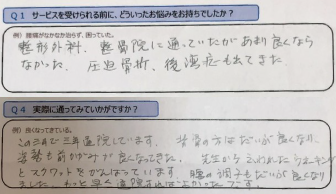 Q1 サービスを受けられる前に、どういったお悩みをお持ちでしたか？
例）腰痛がなかなか治らず、困っていた。
整形外科、整骨院に通っていたがあまり良くなら
なかった、圧迫骨折、後湾症も出てきた
Q4 実際に通ってみていかがですか？
例）良くなってきている。
この3月で三年通院しています。背骨の方はだいぶ良くなり、
姿勢も前かがみが良くなってきた、先生から言われたウォーキング
とスクワットをがんばっています 腰の調子もだいぶ良くなり
ました、もっと早く通院すればよかったです。